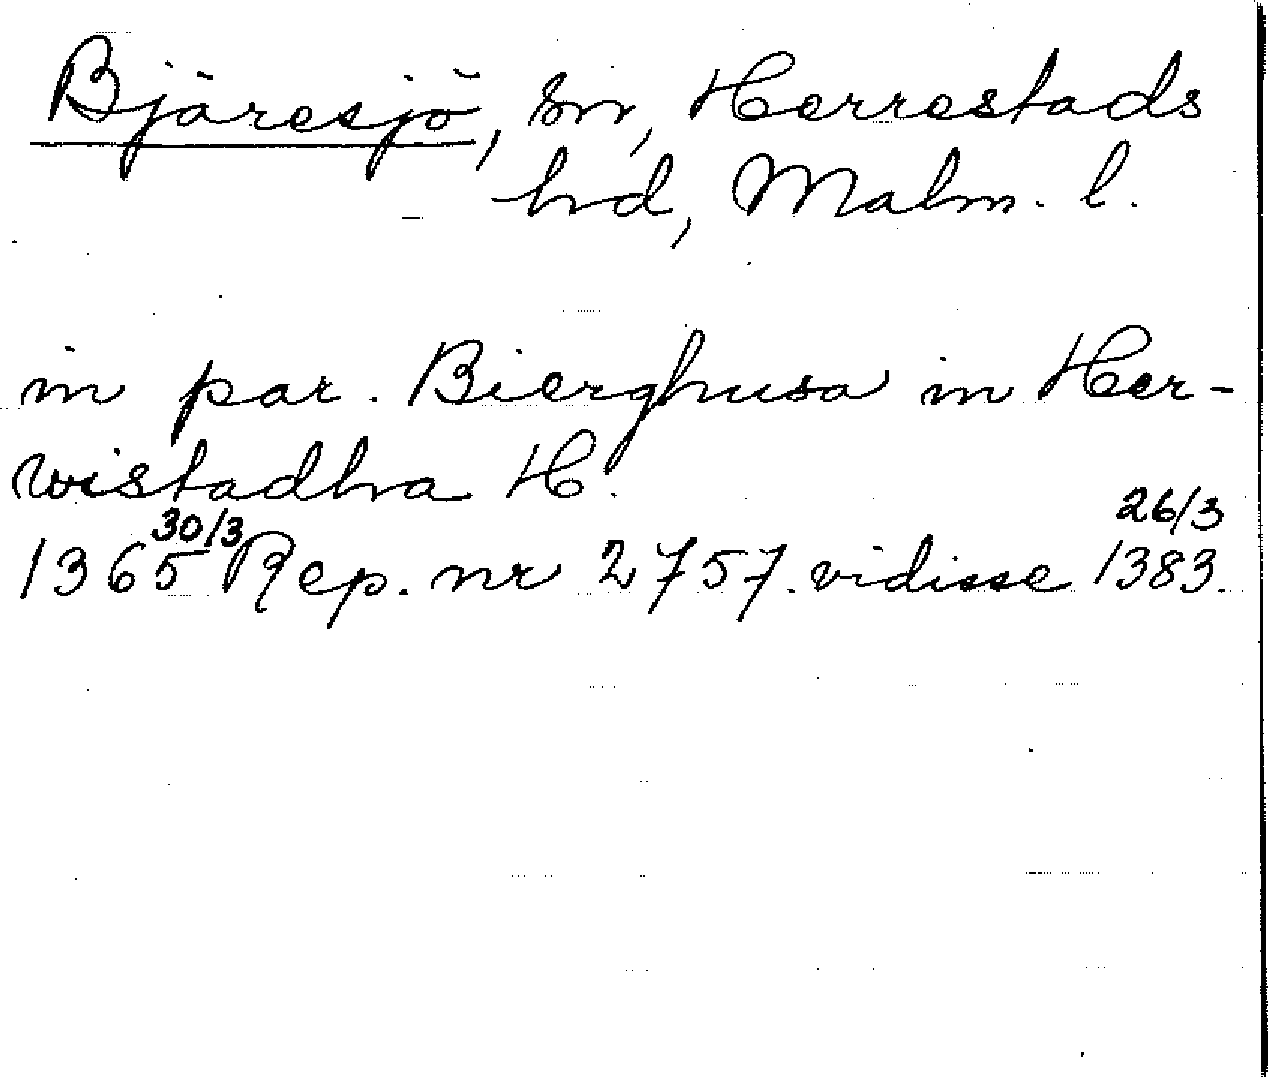 Bjäresjö, sn, Herrestads
hd, Malm. l.
in par. Bierghusa in Her-
wistadhra H.
30/3 26/3
1365 Rep. nr 2757. vidisse 1383.